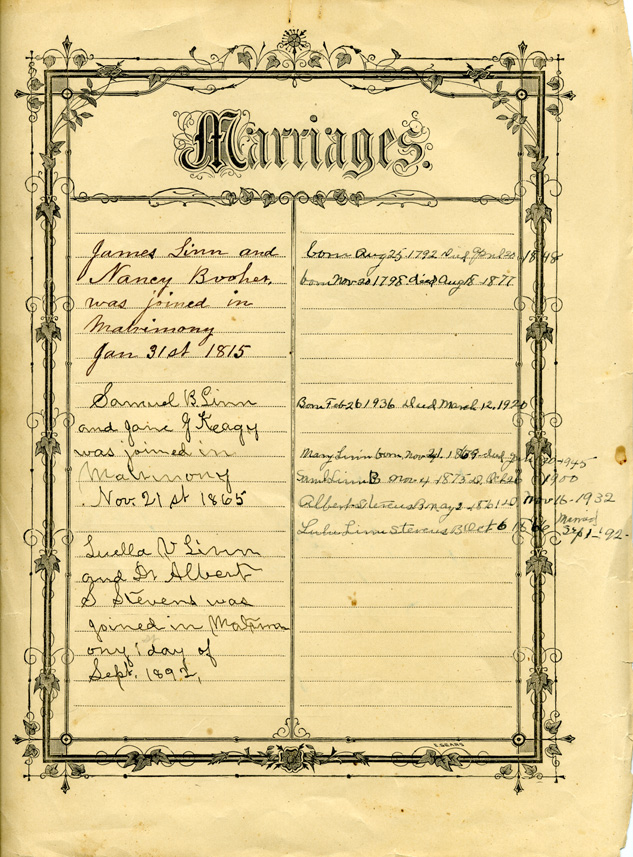 Marriages.
James Linn and
Nancy Booher,
was joined in
Matrimony
Jan 31st 1815
Samuel B. Linn
and Jane G Keagy
was joined in
Matrimony
Nov. 21st 1865
Luella V Linn
and Dr Albert
S Stevens was
joined in Matrim
ony 1st day of
Sept. 1892,
born Aug 25 1792 died 1848
born Nov 20 1798 died Aug 18 1877
Born Feb 26 1936 Died March 12, 1920
Mary Linn born Nov 1869 died 1945
Saml Linn B Nov 4 1875 D. 1900
Albert Stevens B May 2 1861 D Nov 16-1932
Lulu Linn Stevens B Oct 6 1866 Married
Sep 1-'92-
E. SEARS